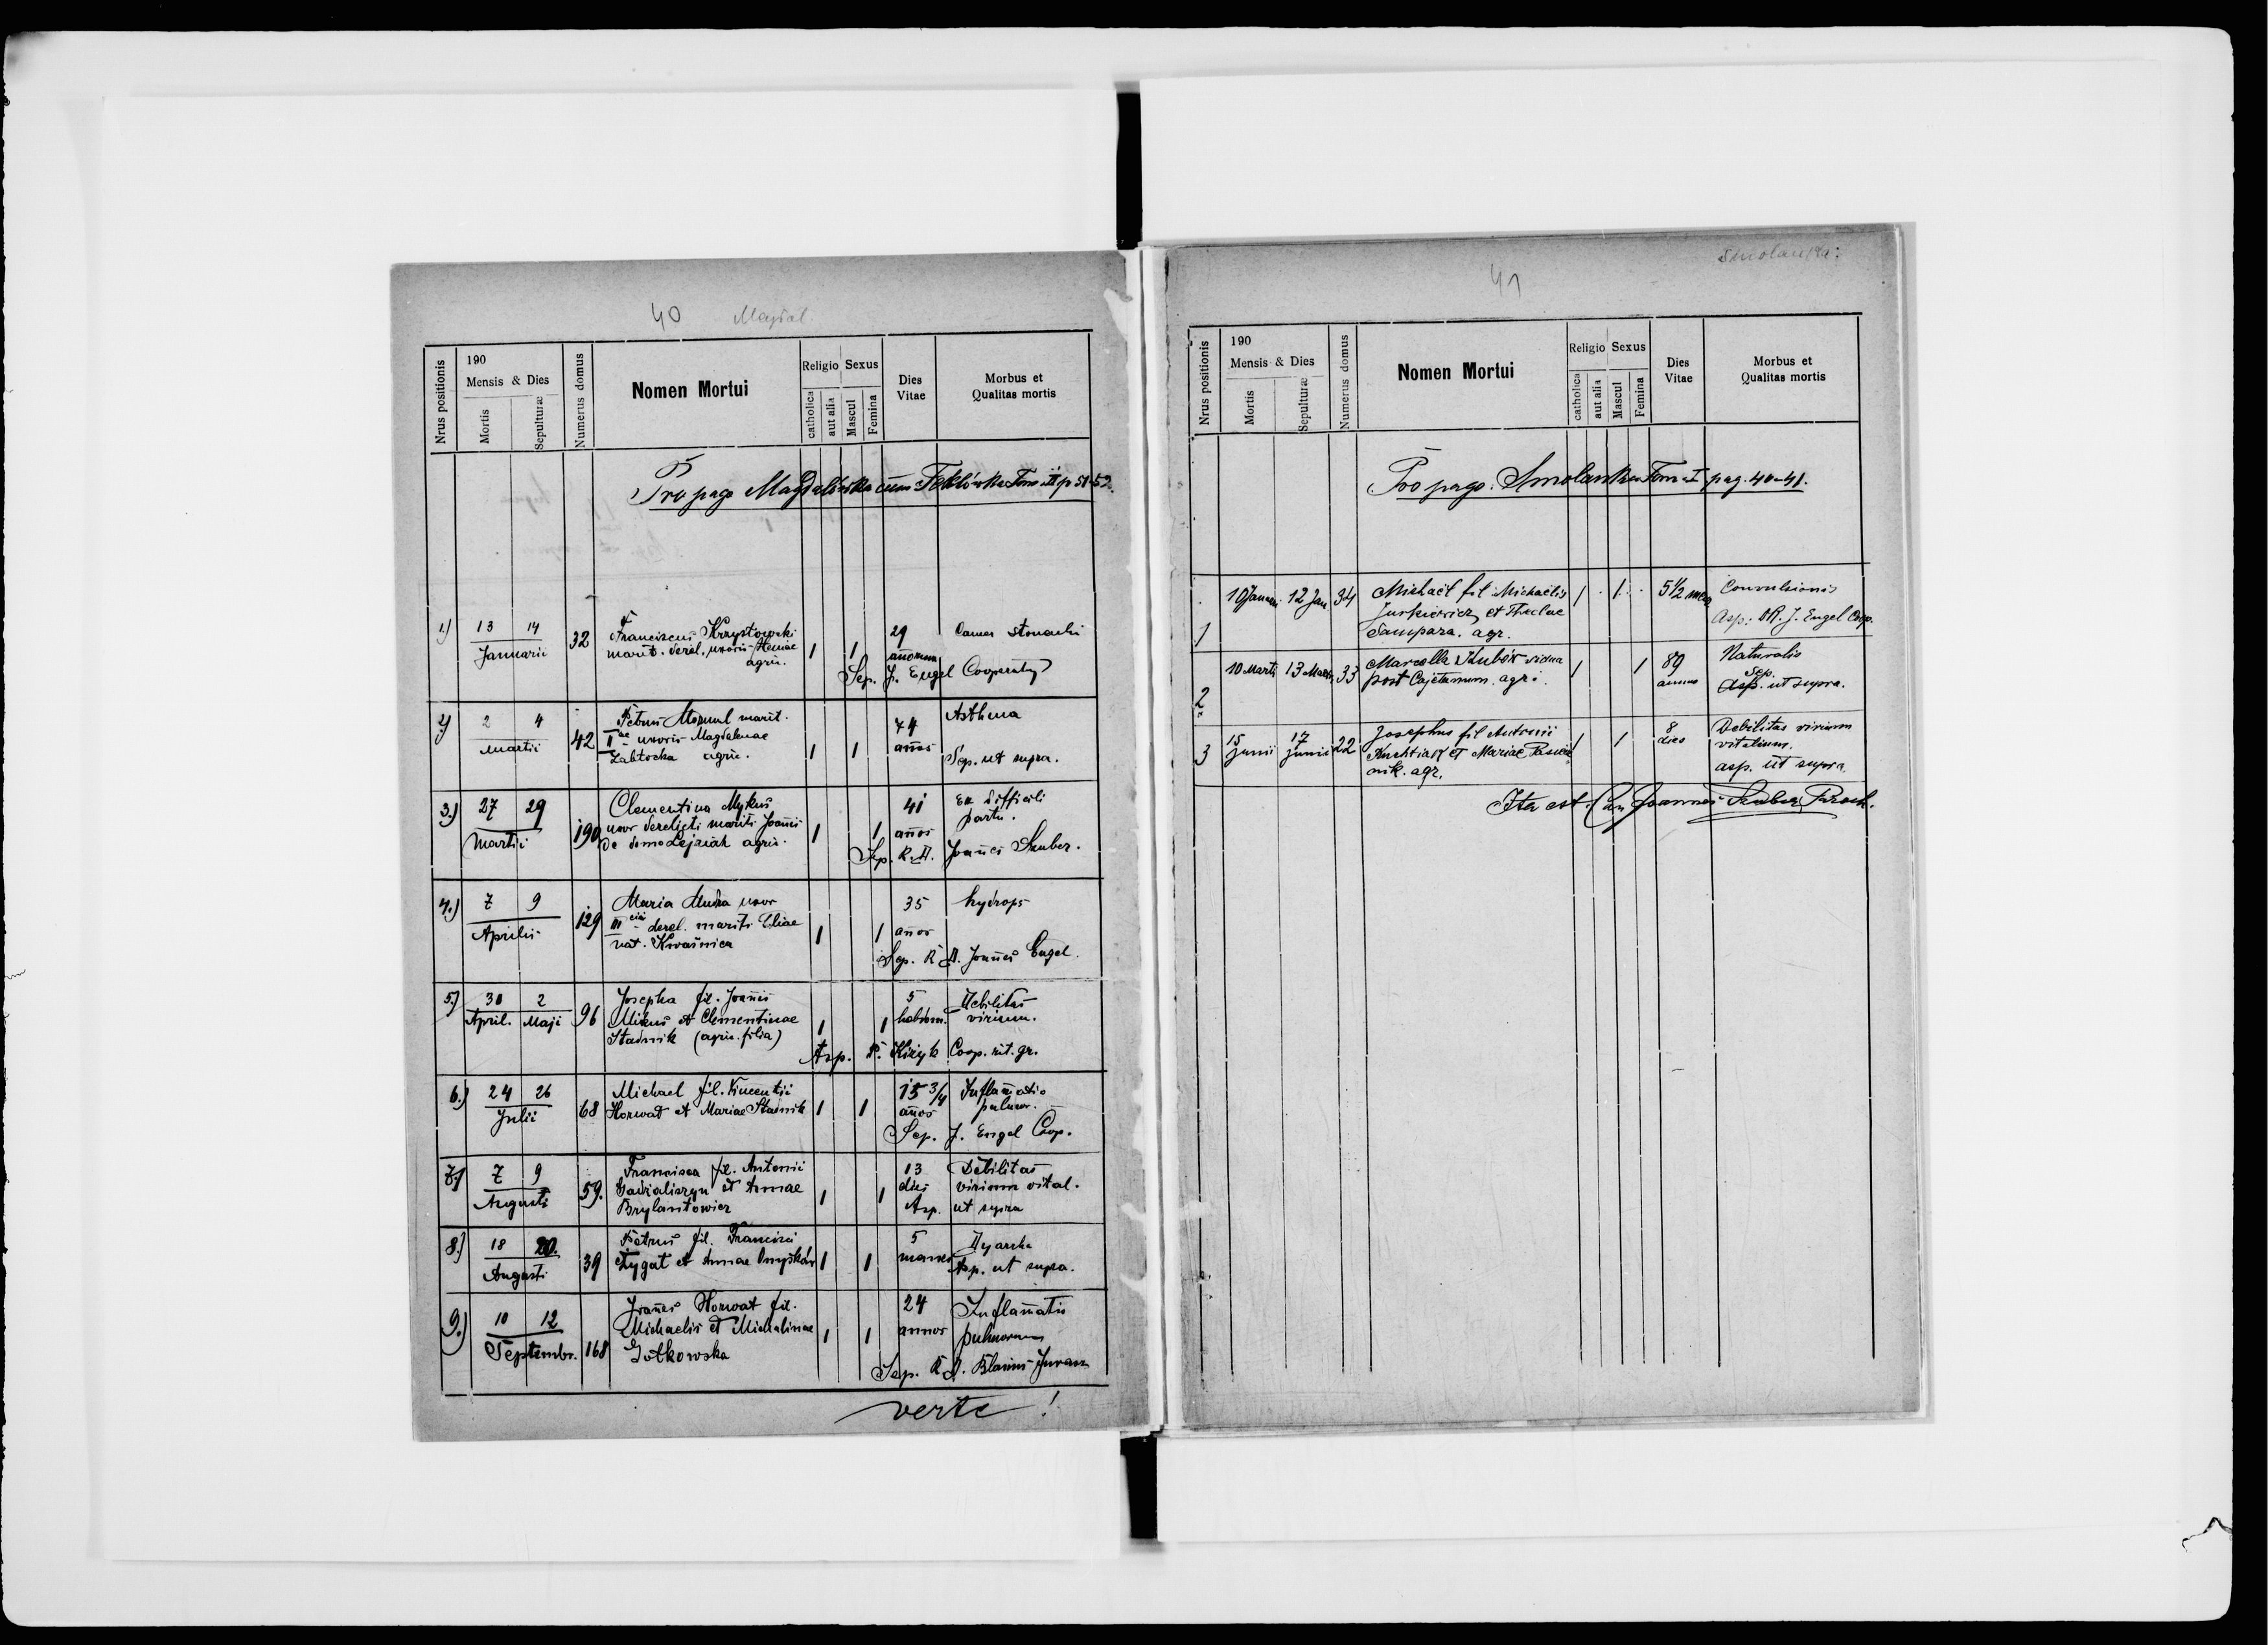 40 Magdal.
Nrus positionis
190
Mensis & Dies
Mortis
Sepulturæ
Numerus domus
Nomen Mortui
Religio
Sexus
catholica
aut alia
Mascul
Femina
Dies Vitae
Morbus et
Qualitas mortis
Pro pago Magdalówka cum Teklówka Tom III p 51-52.
1.) 13 14 Januarii 32
Franciscus Krzystowski
marit. derel. uxoris
agric.
1 1 29 annorum
Sep. J. Engel Cooperator
2.) 2 4 Martii 42
Petrus marit.
II ae uxoris Magdalenae
Zabłocka agric.
1 1 74 anños
Asthma
Sep. ut supra.
3.) 27 29 Martii 190
Clementina Mykus
uxor derelicti mariti Joannis
de domo agric.
1 1 41 añnos
Ex difficili
partu.
Sep. R. D. Joannes Szuber.
4.) 7 9 Aprilis 129
Maria uxor
III derel. mariti Eliae
nat. Kwaśnica
1 1 35 años
hydrops
Sep. R. D. Joannes Engel.
5.) 30 2 April. Maji 96
Josepha fil. Joannis
Mikus et Clementinae
Stadnik (agric. filia)
1 1 5 hebdom.
Debilitas
virium.
Asp. P. Kizyk Coop. rit. gr.
6.) 24 26 Julii 68
Michael fil. Vincentii
Horwat et Mariae Stadnik
1 1 15 3/4 años
Inflamatio
pulmon.
Sep. J. Engel Coop.
7.) 7 9 Augusti 59.
Francisca fil. Antonii
et Annae
Brylantowicz
1 1 13 dies
Debilitas
virium vital.
Asp. ut supra
8.) 18 20. Augusti 39
Petrus fil. Francisci
et Annae
1 1 5 menses
Asp. ut supra.
9.) 10 12 Septembr. 168
Joannes Horwat fil.
Michaelis et Michalinae
Gutkowska
1 1 24 annos
Inflamatio
pulmonum
Sep. R. D. Blasius
verte!
41
Smolanka:
Nrus positionis
190
Mensis & Dies
Mortis
Sepulturæ
Numerus domus
Nomen Mortui
Religio
Sexus
catholica
aut alia
Mascul
Femina
Dies Vitae
Morbus et
Qualitas mortis
Pro pago. Smolanka Tom I pag. 40-41.
1 10 Januarii 12 Jan 34
Michaël fil Michaelis
Jurkiewicz et Theclae
Sampara. agr.
1 1 5 1/2
Convulsionis
Asp: R. J. Engel Coop.
2 10 Martii 13 Martii 33
Marcella vidua
post Cajetanum. agri.
1 1 89 annos
Naturalis
Sep.
ut supra.
3 15 junii 17 junii 22
Josephus fil Antonii
et Mariae
agr.
1 1 8 dies
Debilitas virium
vitalium.
asp. ut supra.
Ita est. Joannes Szuber Paroch.